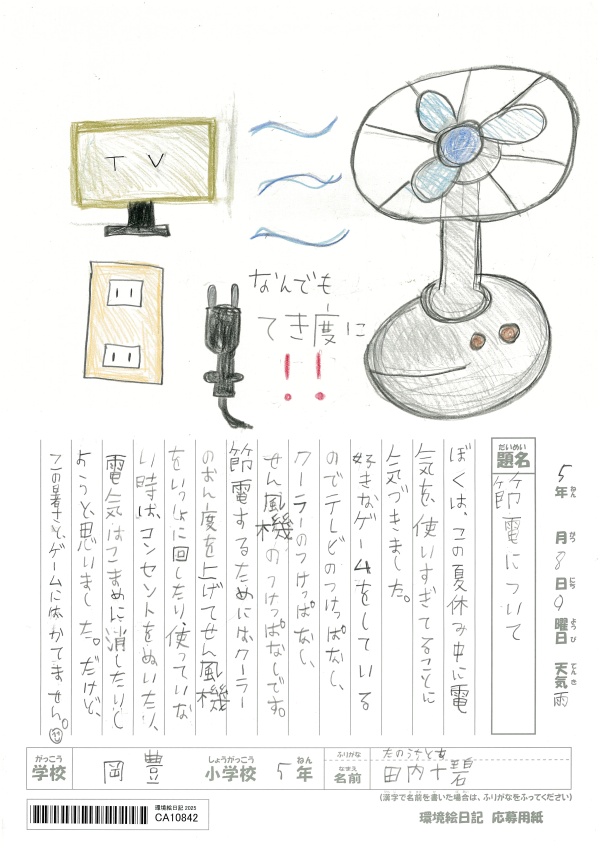 TV
なんでも
てき度に
!!
だいめい
題名
節電について
5年 月8日9曜日 天気雨
ねん がつ にち ようび てんき
ぼくは、この夏休み中に電
気を、使いすぎてることに
気づきました。
好きなゲームをしている
のでテレビのつけっぱなし、
クーラーのつけっぱなし、
せん風機のつけっぱなしです。
節電するためにはクーラー
のおん度を上げてせん風機
をいっしょに回したり、使っていな
い時は、コンセントをぬいたり、
電気はこまめに消したりし
ようと、思いました。だけど、
この暑さと、ゲームにはかてません。
がっこう
学校
岡豊
しょうがっこう
小学校
5年
ねん
ふりがな
なまえ
名前
田内十碧
(漢字で名前を書いた場合は、ふりがなをふってください)
環境絵日記 2025
CA10842
環境絵日記 応募用紙